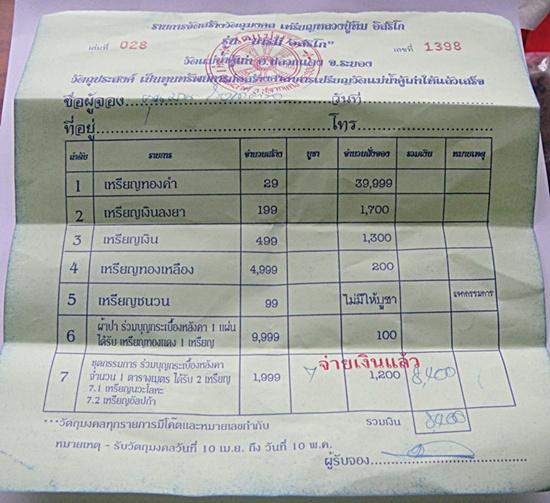 รายการจัดสร้างวัตถุมงคล เหรียญหลวงปู่ทิม อิสริโก
เล่มที่ 028 รุ่น บารมี อิสริโก เลขที่ 1398
วัดแม่น้ำคู้เก่า อ.ปลวกแดง จ.ระยอง
วัตถุประสงค์ เป็นทุนทรัพย์การก่อสร้างศาลาการเปรียญวัดแม่น้ำคู้เก่าให้แล้วเสร็จ
ชื่อผู้จอง วันที่
ที่อยู่ โทร
ลำดับ รายการ จำนวนสร้าง บูชา จำนวนสั่งจอง รวมเงิน หมายเหตุ
1 เหรียญทองคำ 29 39,999
2 เหรียญเงินลงยา 199 1,700
3 เหรียญเงิน 499 1,300
4 เหรียญทองเหลือง 4,999 200
5 เหรียญชนวน 99 ไม่มีให้บูชา แจกกรรมการ
6 ผ้าป่า ร่วมบุญกระเบื้องหลังคา 1 แผ่น
ได้รับ เหรียญทองแดง 1 เหรียญ 9,999 100
จ่ายเงินแล้ว
7 ชุดกรรมการ ร่วมบุญกระเบื้องหลังคา
จำนวน 1 ตารางเมตร ได้รับ 2 เหรียญ 1,999 7 1,200 8,400
7.1 เหรียญนวะโลหะ
7.2 เหรียญอัลปก้า
***วัตถุมงคลทุกรายการมีโค๊ตและหมายเลขกำกับ รวมเงิน 8400
หมายเหตุ - รับวัตถุมงคลวันที่ 10 เม.ย. ถึง วันที่ 10 พ.ค.
ผู้รับจอง